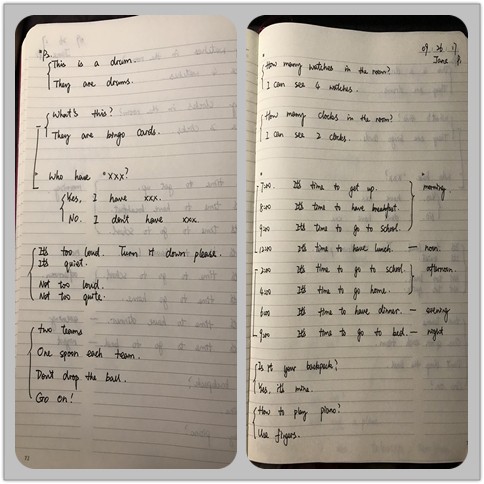 *P2.
This is a drum.
They are drums.
What's this?
They are bingo cards.
Who have *xxx?
Yes, I have xxx.
No. I don't have xxx.
It's too loud. Turn it down please.
It's quiet.
Not too loud.
Not too quite.
two teams
One spoon each team.
Don't drop the ball.
Go on!
09. 26. 17.
Jane P.
How many watches in the room?
I can see 4 watches.
How many clocks in the room?
I can see 2 clocks.
7:00. It's time to get up. morning.
8:00 It's time to have breakfast.
9:00 It's time to go to school.
12:00 It's time to have lunch. — noon.
2:00 It's time to go to school. afternoon.
4:00 It's time to go home.
6:00 It's time to have dinner. — evening
9:00 It's time to go to bed. — night
Is it your backpack?
Yes, it's mine.
How to play piano?
Use fingers.